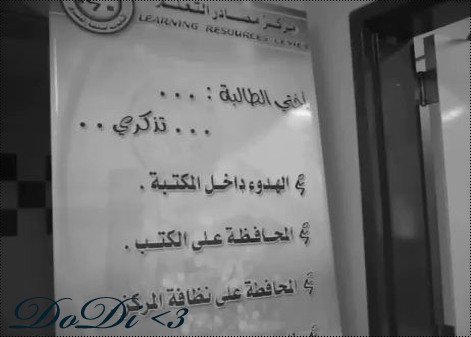 مركز مصادر التعلم
LEARNING RESOURCES CENTER
أختي الطالبة : ...
... تذكري ..
الهدوء داخل المكتبة .
المحافظة على الكتب .
المحافظة على نظافة المركز
DoDi <3